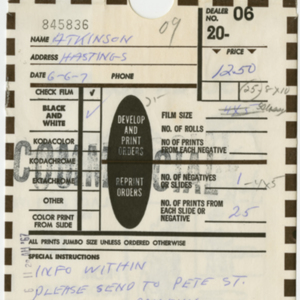 DEALER NO. 06
20-
845836
09
NAME ATKINSON
ADDRESS HASTINGS
DATE 6-6-7 PHONE
PRICE
12.50
CHECK FILM
BLACK AND WHITE
KODACOLOR
KODACHROME
EKTACHROME
OTHER
COLOR PRINT FROM SLIDE
DEVELOP AND PRINT ORDERS
REPRINT ORDERS
FILM SIZE
NO. OF ROLLS
NO. OF PRINTS FROM EACH NEGATIVE
NO. OF NEGATIVES OR SLIDES 1-4x5
NO. OF PRINTS FROM EACH SLIDE OR NEGATIVE 25
ALL PRINTS JUMBO SIZE UNLESS ORDERED OTHERWISE
SPECIAL INSTRUCTIONS
INFO WITHIN
PLEASE SEND TO PETE ST.